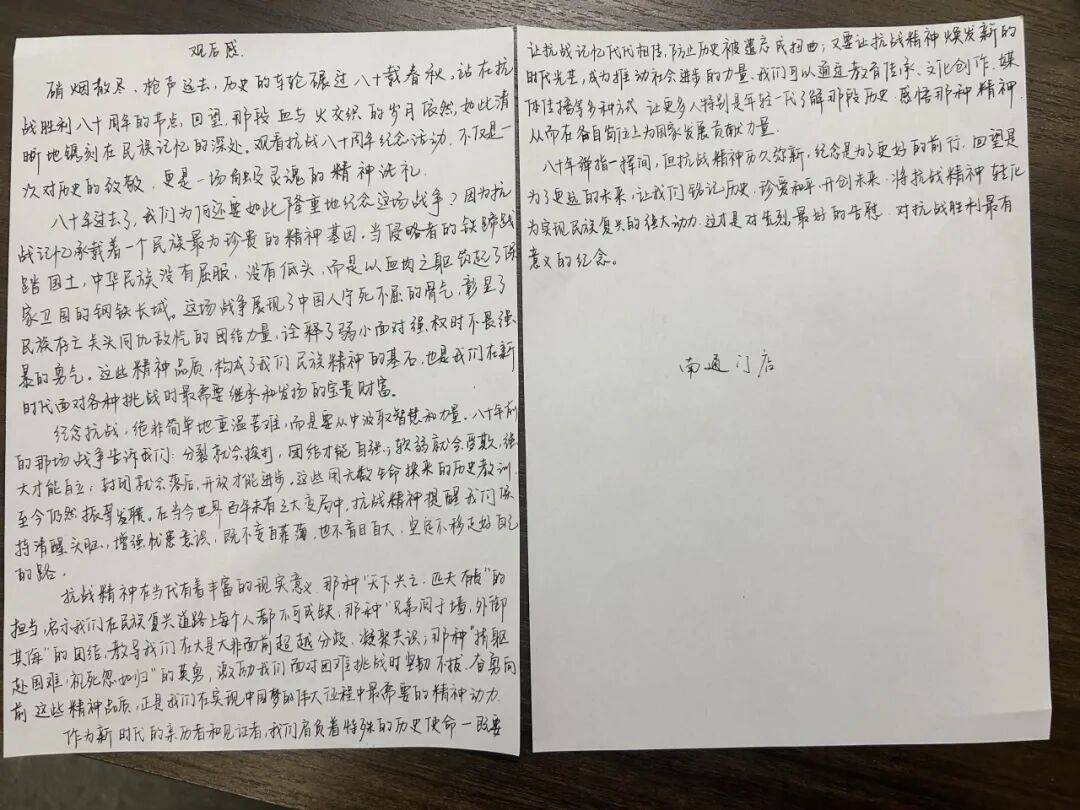 观后感
硝烟散尽、枪声远去,历史的车轮碾过八十载春秋,站在抗
战胜利八十周年的节点,回望,那段血与火交织的岁月依然,如此清
晰地镌刻在民族记忆的深处。观看抗战八十周年纪念活动,不仅是一
次对历史的致敬,更是一场触及灵魂的精神洗礼.
八十年过去了,我们为何还要如此隆重地纪念这场战争?因为抗
战记忆承载着一个民族最为珍贵的精神基因.当侵略者的铁蹄践
踏国土,中华民族没有屈服,没有低头,而是以血肉之躯筑起了保
家卫国的钢铁长城。这场战争展现了中国人宁死不屈的骨气,彰显了
民族存亡关头同仇敌忾的团结力量,诠释了弱小面对强权时不畏强
暴的勇气。这些精神品质,构成了我们民族精神的基石.也是我们在新
时代面对各种挑战时最需要继承和发扬的宝贵财富。
纪念抗战,绝非简单地重温苦难,而是要从中汲取智慧和力量.八十年前
的那场战争告诉我们:分裂就会挨打,团结才能自强;软弱就会受欺,强
大才能自立;封闭就会落后,开放才能进步。这些用无数生命换来的历史教训,
至今仍然振聋发聩。在当今世界百年未有之大变局中,抗战精神提醒我们保
持清醒头脑,增强忧患意识,既不妄自菲薄,也不盲目自大,坚定不移走好自己
的路。
抗战精神在当代有着丰富的现实意义.那种"天下兴亡.匹夫有责"的
担当,启示我们在民族复兴道路上每个人都不可或缺,那种"兄弟阋于墙,外御
其侮"的团结,教导我们在大是大非面前超越分歧、凝聚共识;那种"捐躯
赴国难,视死忽如归"的英勇,激励我们面对困难挑战时坚韧不拔、奋勇向
前.这些精神品质,正是我们在实现中国梦的伟大征程中最需要的精神动力.
作为新时代的亲历者和见证者,我们肩负着特殊的历史使命一既要
让抗战记忆代代相传,防止历史被遗忘或扭曲;又要让抗战精神焕发新的
时代光芒,成为推动社会进步的力量.我们可以通过教育传承、文化创作、媒
体传播等多种方式,让更多人特别是年轻一代了解那段历史.感悟那种精神.
从而在各自岗位上为国家发展贡献力量.
八十年弹指一挥间,但抗战精神历久弥新,纪念是为了更好的前行.回望是
为了更远的未来,让我们铭记历史、珍爱和平、开创未来.将抗战精神转化
为实现民族复兴的强大动力.这才是对先烈最好的告慰.对抗战胜利最有
意义的纪念。
南通门店